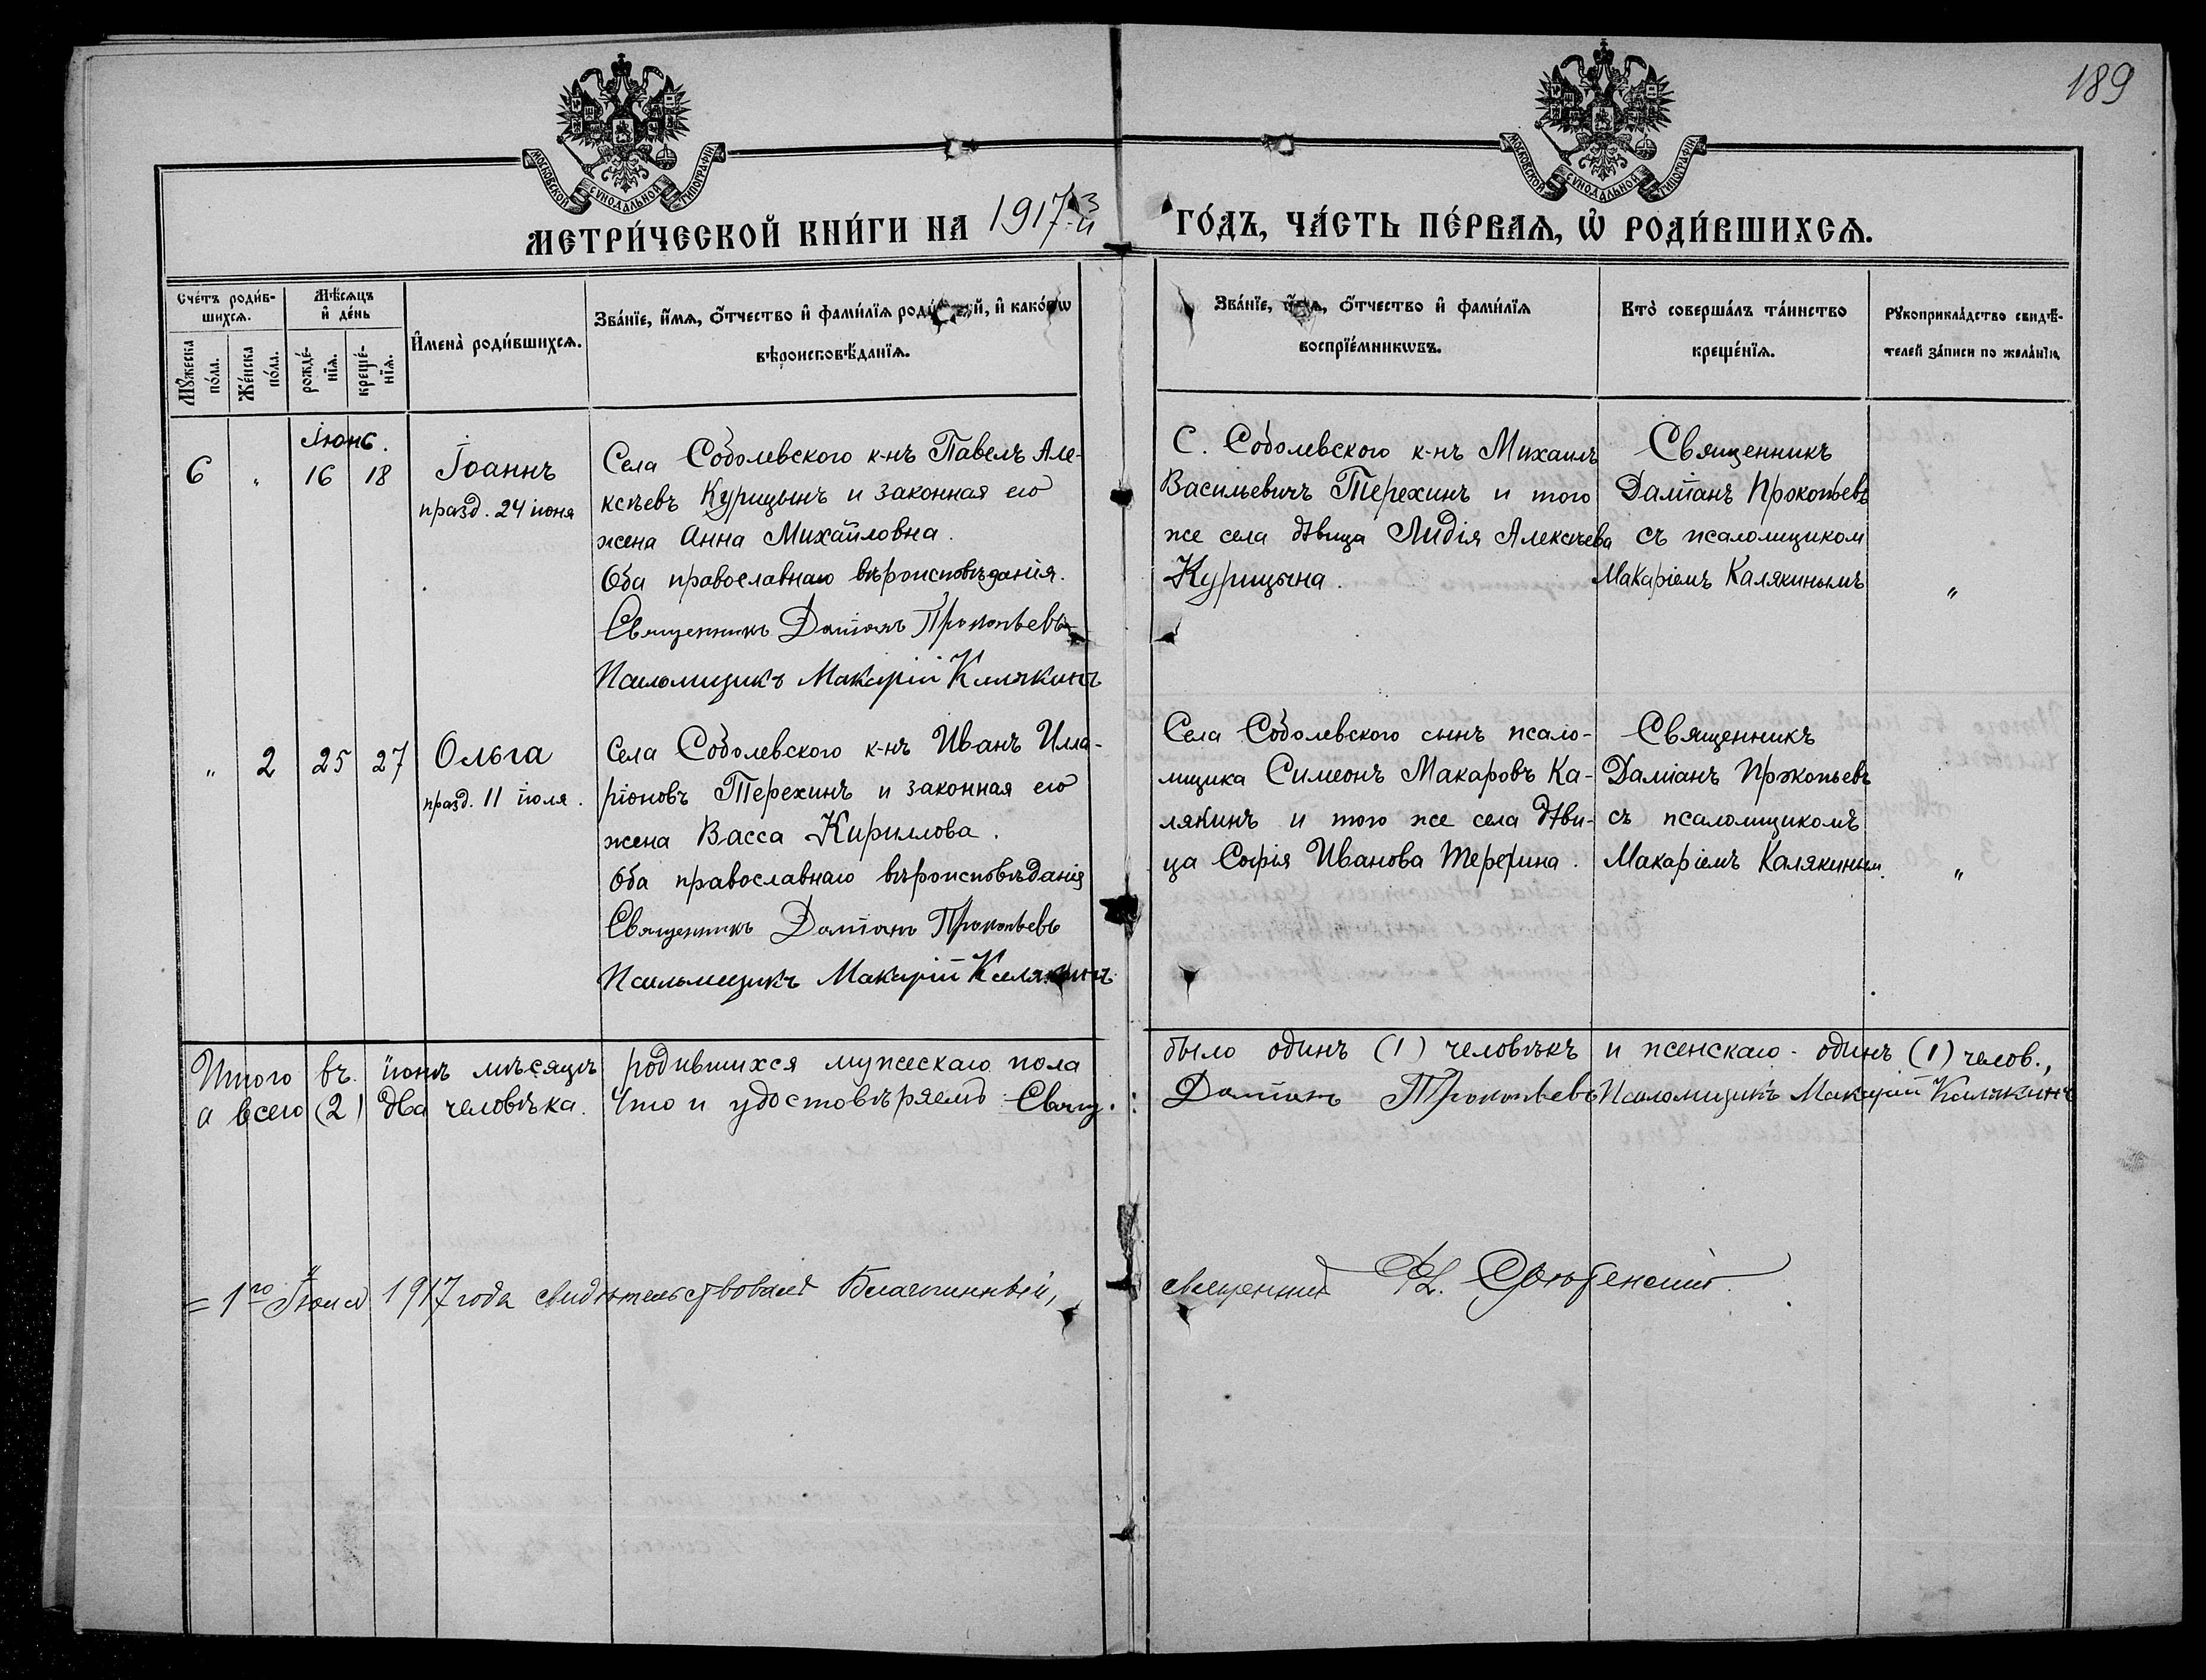 189
МОСКОВСКОЙ СѴНОДАЛЬНОЙ ТИПОГРАФІИ
МОСКОВСКОЙ СѴНОДАЛЬНОЙ ТИПОГРАФІИ
МЕТРИ́ЧЕСКОЙ КНИ́ГИ НА 1917-й
ГО́ДЪ, ЧА́СТЬ ПЕ́РВАѦ, Ѿ РОДИ́ВШИХСѦ.
Сче́тъ роди́в-
шихсѧ.
Мꙋ́жеска по́ла.
Же́нска по́ла.
Мѣ́сѧцъ
и҆ де́нь
рожде́-
нїѧ.
креще́-
нїѧ.
И҆мена̀ роди́вшихсѧ.
Зва́нїе, и҆́мѧ, ѻ҆́тчество и҆ фами́лїѧ роди́телей, и҆ како́гѡ
вѣроисповѣ́данїѧ.
Зва́нїе, и҆́мѧ, ѻ҆́тчество и҆ фами́лїѧ
воспрїе́мникѡвъ.
Кто̀ соверша́лъ та́инство
креще́нїѧ.
Рꙋкоприкла́дство свидѣ́-
телей за́писи по жела́нїю
Іюнь.
6 " 16 18
Іоаннъ
празд. 24 іюня
Села Соболевского к-нъ Павелъ Але-
ксѣевъ Курицынъ и законная его
жена Анна Михайловна.
Оба православнаго вѣроисповѣданія.
Священникъ Даміанъ Прокопьевъ
Псаломщикъ Макарій Калякинъ
С. Соболевского к-нъ Михаилъ
Васильевичъ Терехинъ и того
же села дѣвица Лидія Алексѣева
Курицына.
Священникъ
Даміанъ Прокопьевъ
съ псаломщиком
Макаріемъ Калякинымъ
"
" 2 25 27
Ольга
празд. 11 іюля.
Села Соболевского к-нъ Иванъ Илла-
ріоновъ Терехинъ и законная его
жена Васса Кириллова.
Оба православнаго вѣроисповѣданія
Священникъ Даміанъ Прокопьевъ
Псаломщикъ Макарій Калякинъ
Села Соболевского сынъ псало-
мщика Симеонъ Макаровъ Ка-
лякинъ и того же села дѣви-
ца Софія Иванова Терехина.
Священникъ
Даміанъ Прокопьевъ
съ псаломщикомъ
Макаріемъ Калякиным.
"
Итого въ іюнѣ мѣсяцѣ родившихся мужескаго пола было одинъ (1) человѣкъ и женскаго - одинъ (1) челов.,
а всего (2) два человѣка. Что и удостовѣряемъ: Свящ. Даміанъ Прокопьевъ Псаломщикъ Макарій Калякинъ
= 1го Іюля 1917 года свидѣтельствовалъ Благочинный, священникъ